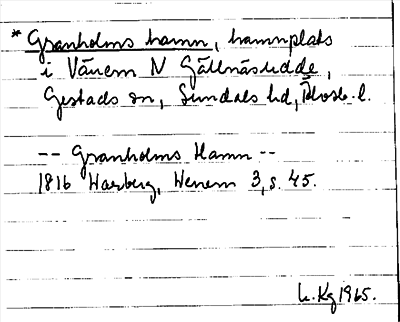 * Granholms hamn, hamnplats
i Vänern N Gällnäsudde,
Gestads sn, Sundals hd, Älvsb. l.
-- Granholms Hamn --
1816 Warberg, Wenern 3, s. 45.
L. Kg 1965.